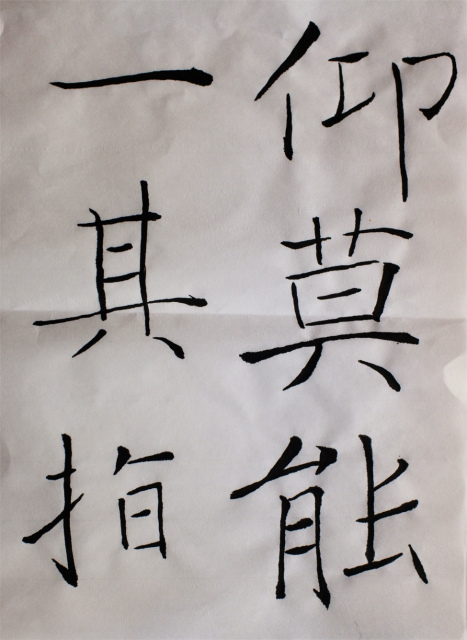 仰莫能
一其指